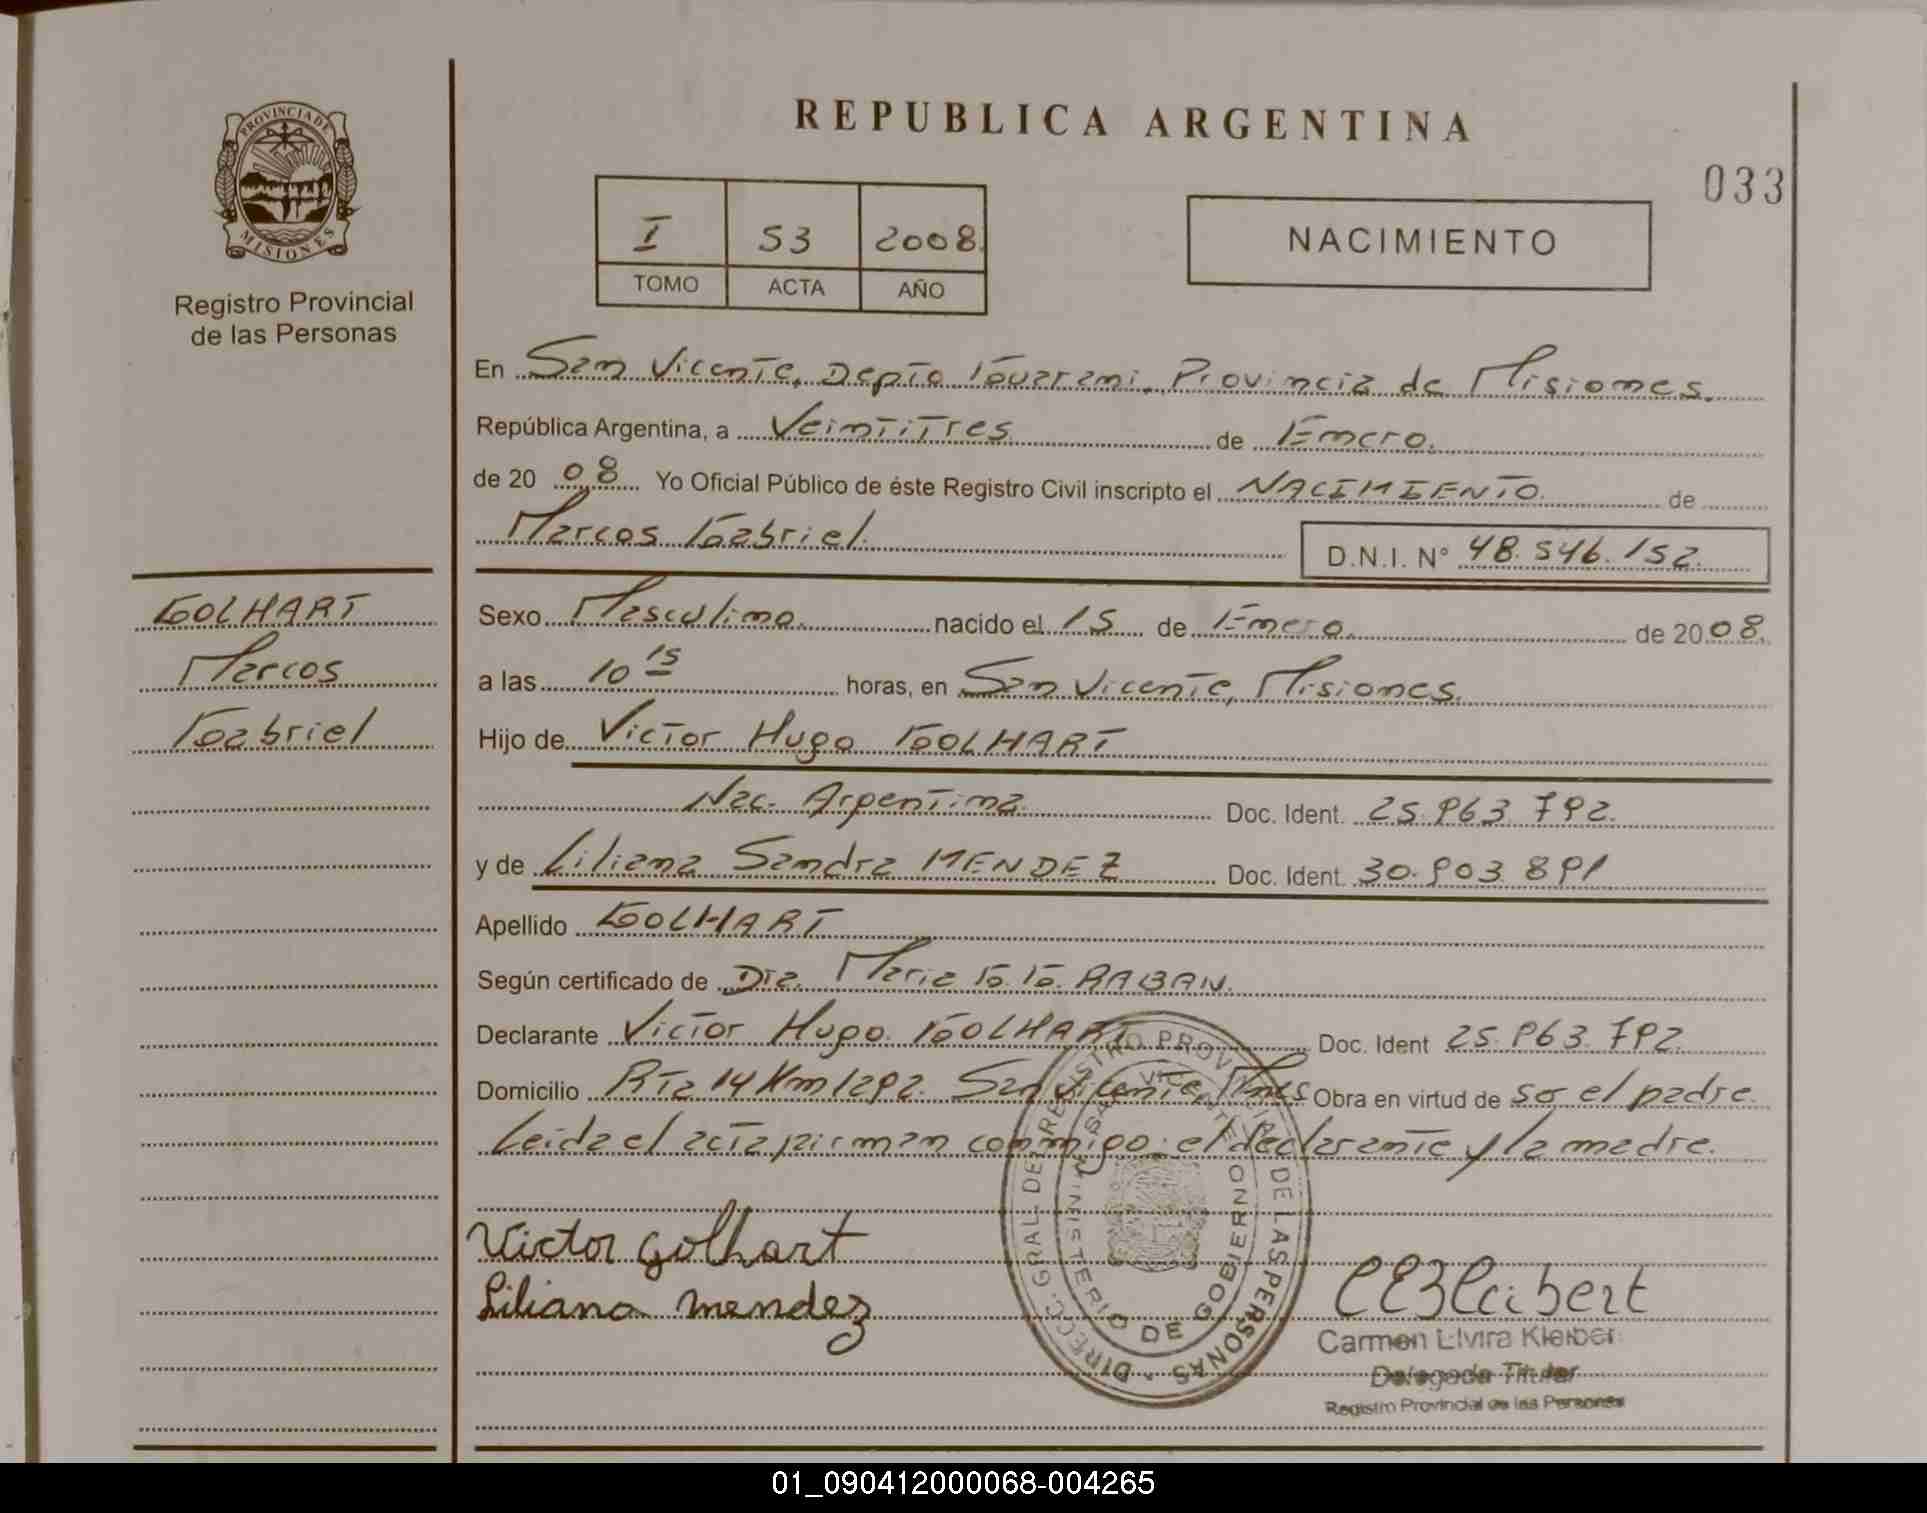 REPUBLICA ARGENTINA
033
PROVINCIA DE MISIONES
Registro Provincial
de las Personas
I 53 2008
TOMO ACTA AÑO
NACIMIENTO
En San Vicente, Depto Guarani, Provincia de Misiones.
República Argentina, a Veintitres de Enero.
de 20 08 Yo Oficial Público de éste Registro Civil inscripto el NACIMIENTO de
Marcos Gabriel. D.N.I. N° 48.546.152.
GOLHART
Marcos
Gabriel
Sexo Masculino. nacido el 15 de Enero. de 20 08.
a las 10 15 horas, en San Vicente, Misiones.
Hijo de Victor Hugo GOLHART
Nac. Argentina. Doc. Ident. 25.963.792.
y de Liliana Sandra MENDEZ Doc. Ident. 30.903.891
Apellido GOLHART
Según certificado de Dra. Maria G. G. RABAN.
Declarante Victor Hugo GOLHART Doc. Ident 25.963.792.
Domicilio Rta 14 Km 1292. San Vicente, Mnes Obra en virtud de ser el padre.
Leida el acta firman conmigo: el declarante y la madre.
DIRECC. GRAL. DE REGISTRO PROVINCIAL DE LAS PERSONAS
SAN VICENTE
MINISTERIO DE GOBIERNO
Victor Golhart
Liliana Mendez
Carmen Elvira Kleiber
Delegada Titular
Registro Provincial de las Personas
01_090412000068-004265